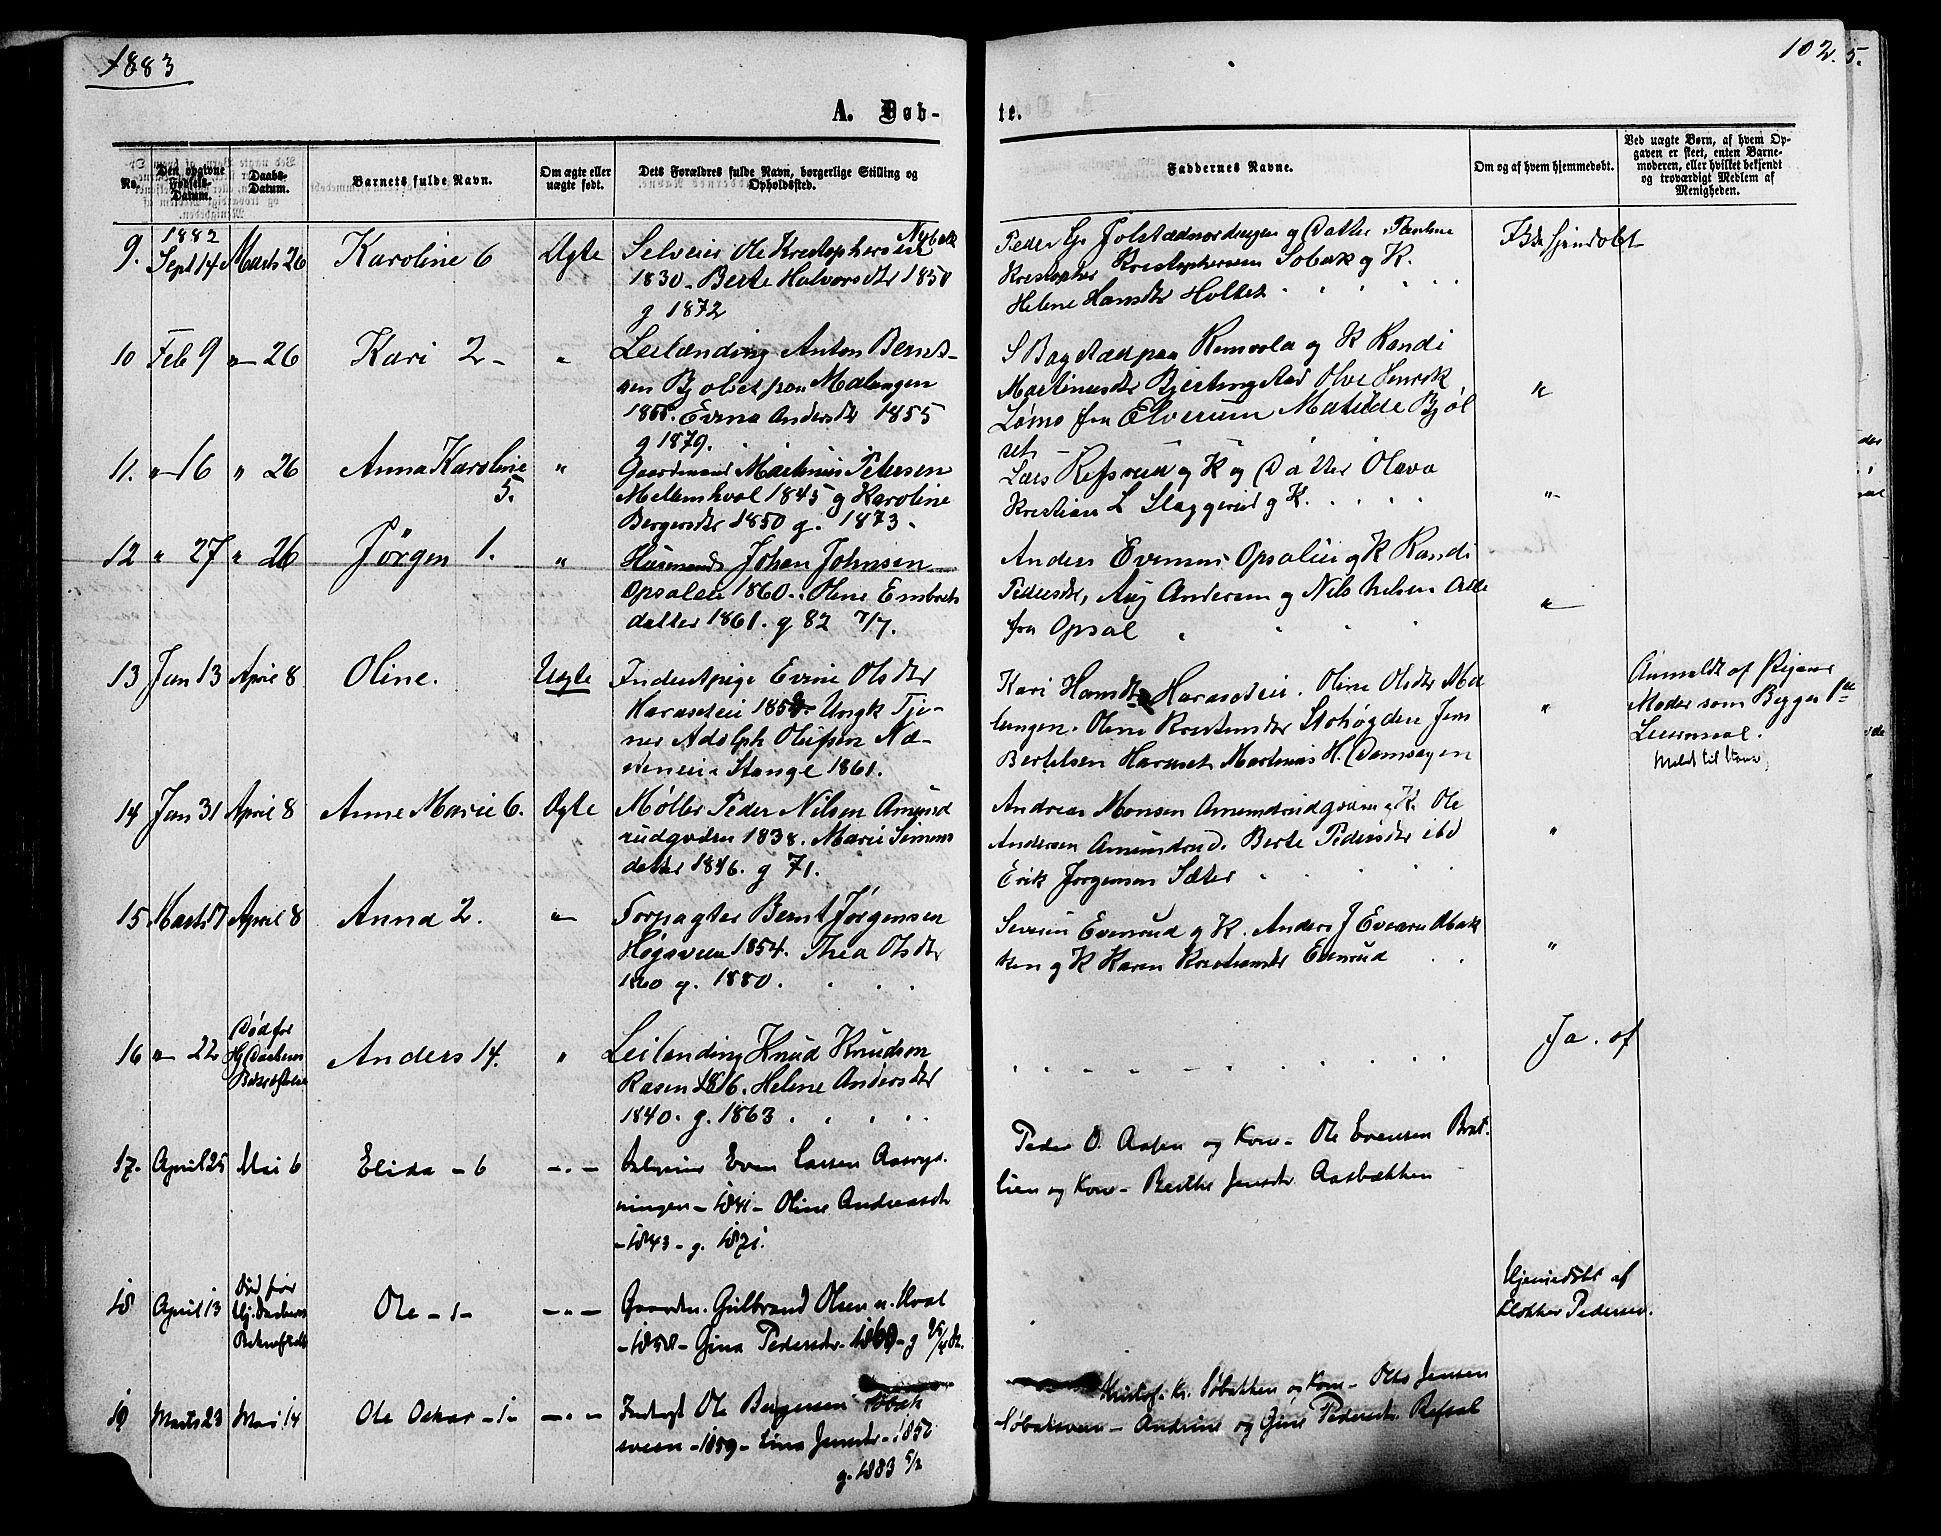 1883
102.
5.
A. Døb-
te.
No.
Den opgivne Fødsels-Datum.
Daabs-Datum.
Barnets fulde Navn.
Om ægte eller uægte født.
Dets Forældres fulde Navn, borgerlige Stilling og Opholdssted.
Faddernes Navne.
Om og af hvem hjemmedøbt.
Ved uægte Børn, af hvem Opgaven er skeet, enten Barnemoderen, eller hvilket bekjendt og troværdigt Medlem af Menigheden.
9. 1882 Sept 14 Marts 26 Karoline 6 Ægte Selveier Ole Kristophersen
1830 - Berte Halvorsdtr 1850
g 1872
Kristopher Kristophersen Sobak og K.
Helene Hansdtr Holtet
10 Feb 9 " 26 Kari 2 - " Leilænding Anton Bernt-
sen Bjølset paa Malungen
Evina Andersdtr 1855
g 1879.
S Bagstad paa Romvola og K Randi
Lømo fra Elverum Matilde Bjøl
set
11. " 16 " 26 Anna Karoline 5. " Gaardmand Martinus Petersen
Mellemhvol 1845 g Karoline
Bergersdtr 1850 g. 1873.
Lars Refsrud og K og Datter Olava
Kristian L Slaggerud g K.
12 " 27 " 26 Jørgen 1. " Husmand Johan Johnsen
Opsaleie 1860. Olene Embrets
datter 1861. g 82 7/7.
Anders Evensen Opsaleie g K Randi
Pedersdtr, Aug Andersen g Nils Nelsen Alle
fra Opsal "
13 Jan 13 April 8 Oline. Uægte Inderstpige Evine Olsdtr
Haraseteie Ungk Tje-
ner Adolph Olufsen Næ-
seneie Stange 1861.
Kari Hansdtr Haraseteie. Oline Olsdtr Mel
lungen. Oline Stohøgden Jens
Bertelsen Haraset Martinus H. Damsagen
"
Anmeldt af Pigens
Moder som Begges 1ste
Leiermaal.
14 Jan 31 April 8 Anne Marie 6. Ægte Møller Peder Nilsen Amund
rudgvolen 1838. Marie Simens
datter 1846. g 71.
Andreas Monsen Amundrudgvolen g K. Ole
Andersen Amundrud. Berte Pedersdtr ibd
Erik Jørgensen Sæter
"
15 Marts 17 April 8 Anna 2. " Forpagter Bernt Jørgensen
Høgsveen 1854. Thea Olsdtr
1860 g. 1880.
Severin Evenrud g K. Anders J Evenrudbak
ken g K Karen Kristiansdtr Evenrud
"
16 " 22 Død før Hj. Daabens Bekræftelse Anders 14. " Leilænding Knud Knudsen
Rasen Helene Andersdtr
1840. g. 1863
Ja. af
17. April 25 Mai 6 Elida - 6 - " - Selveier Even Larsen Aasryd-
ningen - 1841 - Oline Andreasdtr
- 1843 - g. 1871.
Peder O. Aasen og Kone - Ole Evensen Brat-
lien og Kone - Berthe Jensdtr Aasbækken
18 April 13 Død før Hj. Daabens Bekræftelse Ole - 1 - - " - Gaardm. Gulbrand Olsen n. Hval
- 1858 - Gina Pedersdtr - 1860 - g
Hjemmedøbt af
Klokker Pedersen.
19 Marts 23 Mai 14 Ole Oskar - 1 - - " - Inderst Ole Bergersen Søbak
sveen - 1859 - Lina Jensdtr -
g. 1883
Kristof. Kr. Søbakken og Kone - Otto Jensen
Søbaksveen - Andrine og Gina Pedersdtr. Refsal